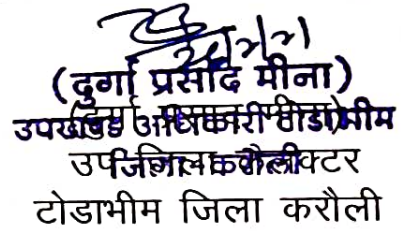 (दुर्गा प्रसाद मीना)
(दुर्गा प्रसाद मीना)
उपखण्ड अधिकारी टोडाभीम
जिला करौली
उप जिला कलेक्टर
टोडाभीम जिला करौली